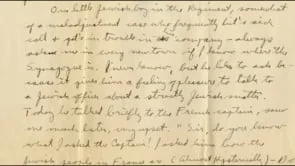 One little Jewish boy in the Regiment, somewhat
of a maladjusted case who frequently hit's sick
call & got's in trouble in company – always
asks me in every new town if I know where the
Synagogue is. I never know, but he likes to ask be-
cause it gives him a feeling of pleasure to talk to
a Jewish officer about a strictly Jewish matter.
Today he talked briefly to the French captain, saw
me much later, very upset. "Sir, do you know
what I asked the Captain? I asked him how the
Jewish people in France are. (Almost Hysterically) –